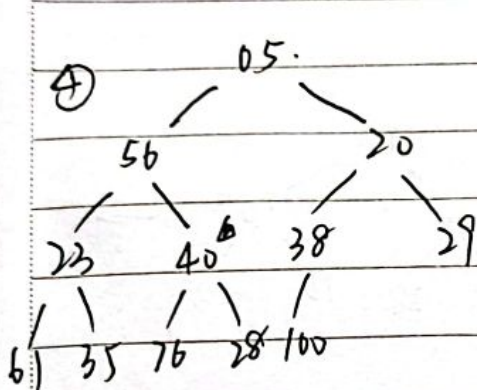 ④ 05.
56 20
23 40 38 29
61 35 76 28 100